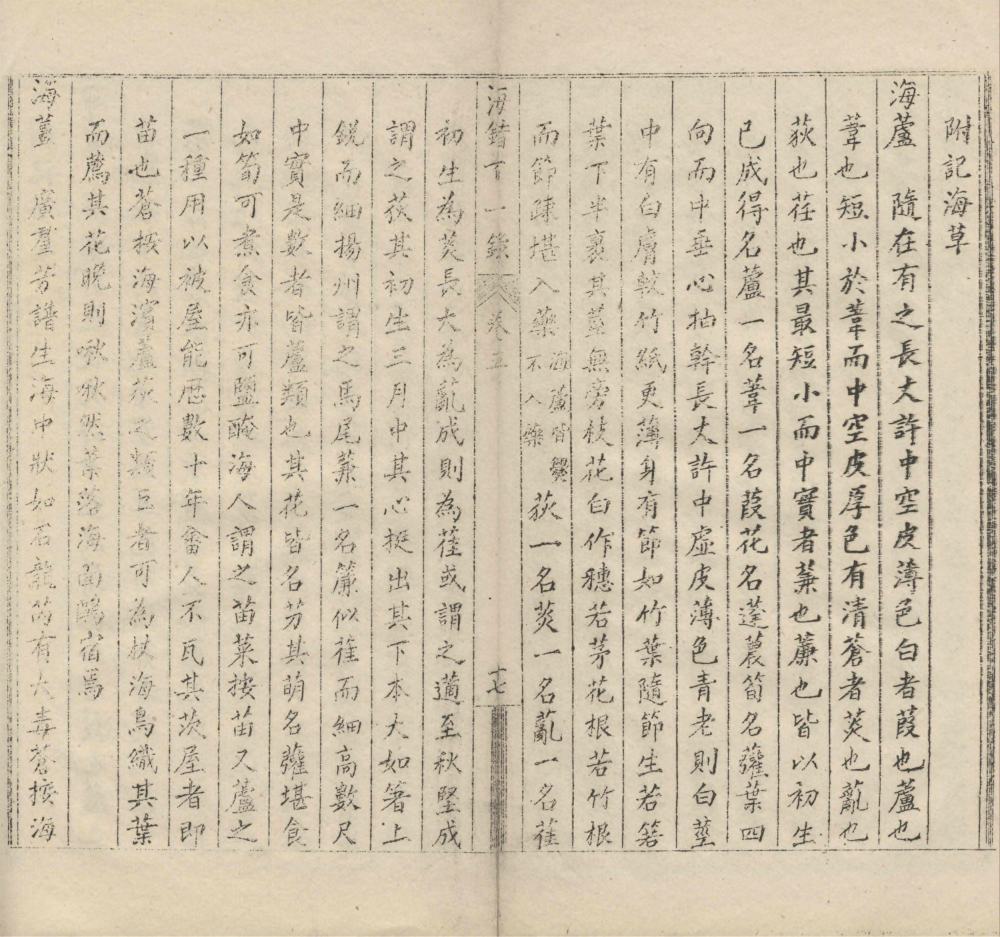 附記海草
海蘆　隨在有之長大許中空皮薄色白者葭也蘆也
葦也短小於葦而中空皮厚色有清蒼者菼也薍也
荻也萑也其最短小而中實者蒹也薕也皆以初生
已成得名蘆一名葦一名葭花名蓬蕽筍名虇葉四
向而中垂心抽幹長大許中虛皮薄色青老則白莖
中有白膚較竹紙更薄身有節如竹葉隨節生若箬
葉下半裹其莖無旁枝花白作穗若茅花根若竹根
而節疎堪入藥海蘆皆不入藥荻一名菼一名薍一名萑
海錯百一錄　卷五　十七
初生為菼長大為薍成則為萑或謂之薖至秋堅成
謂之荻其初生三月中其心挺出其下本大如箸上
銳而細揚州謂之馬尾蒹一名簾似萑而細高數尺
中實是數者皆蘆類也其花皆名芀其萌名虇堪食
如筍可煮食亦可鹽醃海人謂之苗菜按苗又蘆之
一種用以被屋能歷數十年畬人不瓦其茨屋者即
苗也蒼按海濱蘆荻之類巨者可為杖海鳥織其葉
而薦其花晚則啾啾然葉落海面鷗宿焉
海薑　廣羣芳譜生海中狀如石龍芮有大毒蒼按海